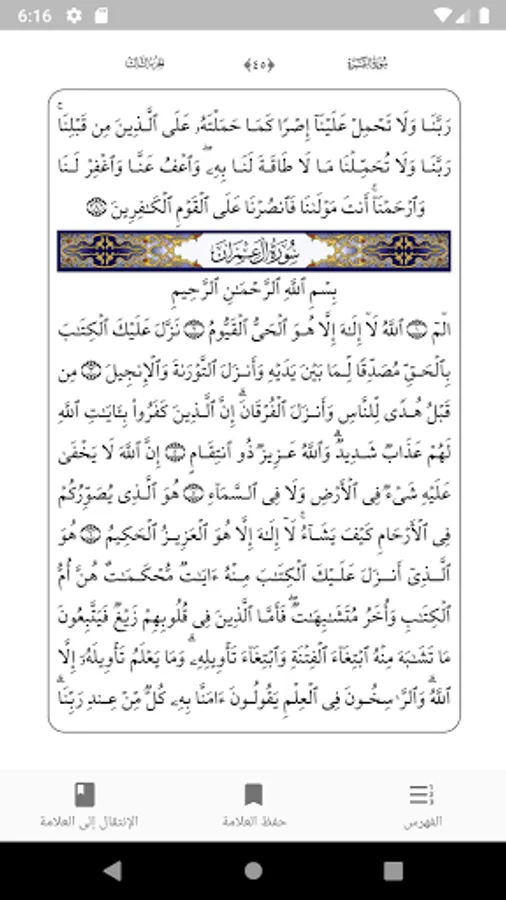 6:16
سُورَةُ البَقَرَةِ ﴿٤٥﴾ الجُزءُ الثَّالِثُ
رَبَّنَا وَلَا تَحْمِلْ عَلَيْنَآ إِصْرًا كَمَا حَمَلْتَهُۥ عَلَى ٱلَّذِينَ مِن قَبْلِنَاۚ
رَبَّنَا وَلَا تُحَمِّلْنَا مَا لَا طَاقَةَ لَنَا بِهِۦۖ وَٱعْفُ عَنَّا وَٱغْفِرْ لَنَا
وَٱرْحَمْنَآۚ أَنتَ مَوْلَىٰنَا فَٱنصُرْنَا عَلَى ٱلْقَوْمِ ٱلْكَٰفِرِينَ
سُورَةُ آلِ عِمْرَانَ
بِسْمِ ٱللَّهِ ٱلرَّحْمَٰنِ ٱلرَّحِيمِ
الٓمٓ ۝ ٱللَّهُ لَآ إِلَٰهَ إِلَّا هُوَ ٱلْحَىُّ ٱلْقَيُّومُ ۝ نَزَّلَ عَلَيْكَ ٱلْكِتَٰبَ
بِٱلْحَقِّ مُصَدِّقًا لِّمَا بَيْنَ يَدَيْهِ وَأَنزَلَ ٱلتَّوْرَىٰةَ وَٱلْإِنجِيلَ ۝ مِن
قَبْلُ هُدًى لِّلنَّاسِ وَأَنزَلَ ٱلْفُرْقَانَۗ إِنَّ ٱلَّذِينَ كَفَرُوا۟ بِـَٔايَٰتِ ٱللَّهِ
لَهُمْ عَذَابٌ شَدِيدٌۗ وَٱللَّهُ عَزِيزٌ ذُو ٱنتِقَامٍ ۝ إِنَّ ٱللَّهَ لَا يَخْفَىٰ
عَلَيْهِ شَىْءٌ فِى ٱلْأَرْضِ وَلَا فِى ٱلسَّمَآءِ ۝ هُوَ ٱلَّذِى يُصَوِّرُكُمْ
فِى ٱلْأَرْحَامِ كَيْفَ يَشَآءُۚ لَآ إِلَٰهَ إِلَّا هُوَ ٱلْعَزِيزُ ٱلْحَكِيمُ ۝ هُوَ
ٱلَّذِىٓ أَنزَلَ عَلَيْكَ ٱلْكِتَٰبَ مِنْهُ ءَايَٰتٌ مُّحْكَمَٰتٌ هُنَّ أُمُّ
ٱلْكِتَٰبِ وَأُخَرُ مُتَشَٰبِهَٰتٌۖ فَأَمَّا ٱلَّذِينَ فِى قُلُوبِهِمْ زَيْغٌ فَيَتَّبِعُونَ
مَا تَشَٰبَهَ مِنْهُ ٱبْتِغَآءَ ٱلْفِتْنَةِ وَٱبْتِغَآءَ تَأْوِيلِهِۦۗ وَمَا يَعْلَمُ تَأْوِيلَهُۥٓ إِلَّا
ٱللَّهُۗ وَٱلرَّٰسِخُونَ فِى ٱلْعِلْمِ يَقُولُونَ ءَامَنَّا بِهِۦ كُلٌّ مِّنْ عِندِ رَبِّنَاۗ
الفهرس حفظ العلامة الإنتقال إلى العلامة